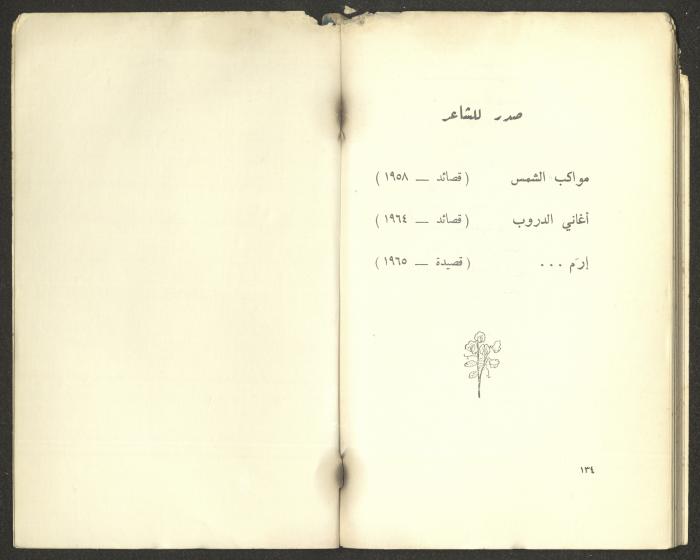 صدر للشاعر
مواكب الشمس (قصائد — ١٩٥٨)
أغاني الدروب (قصائد — ١٩٦٤)
إرَم ... (قصيدة — ١٩٦٥)
١٣٤